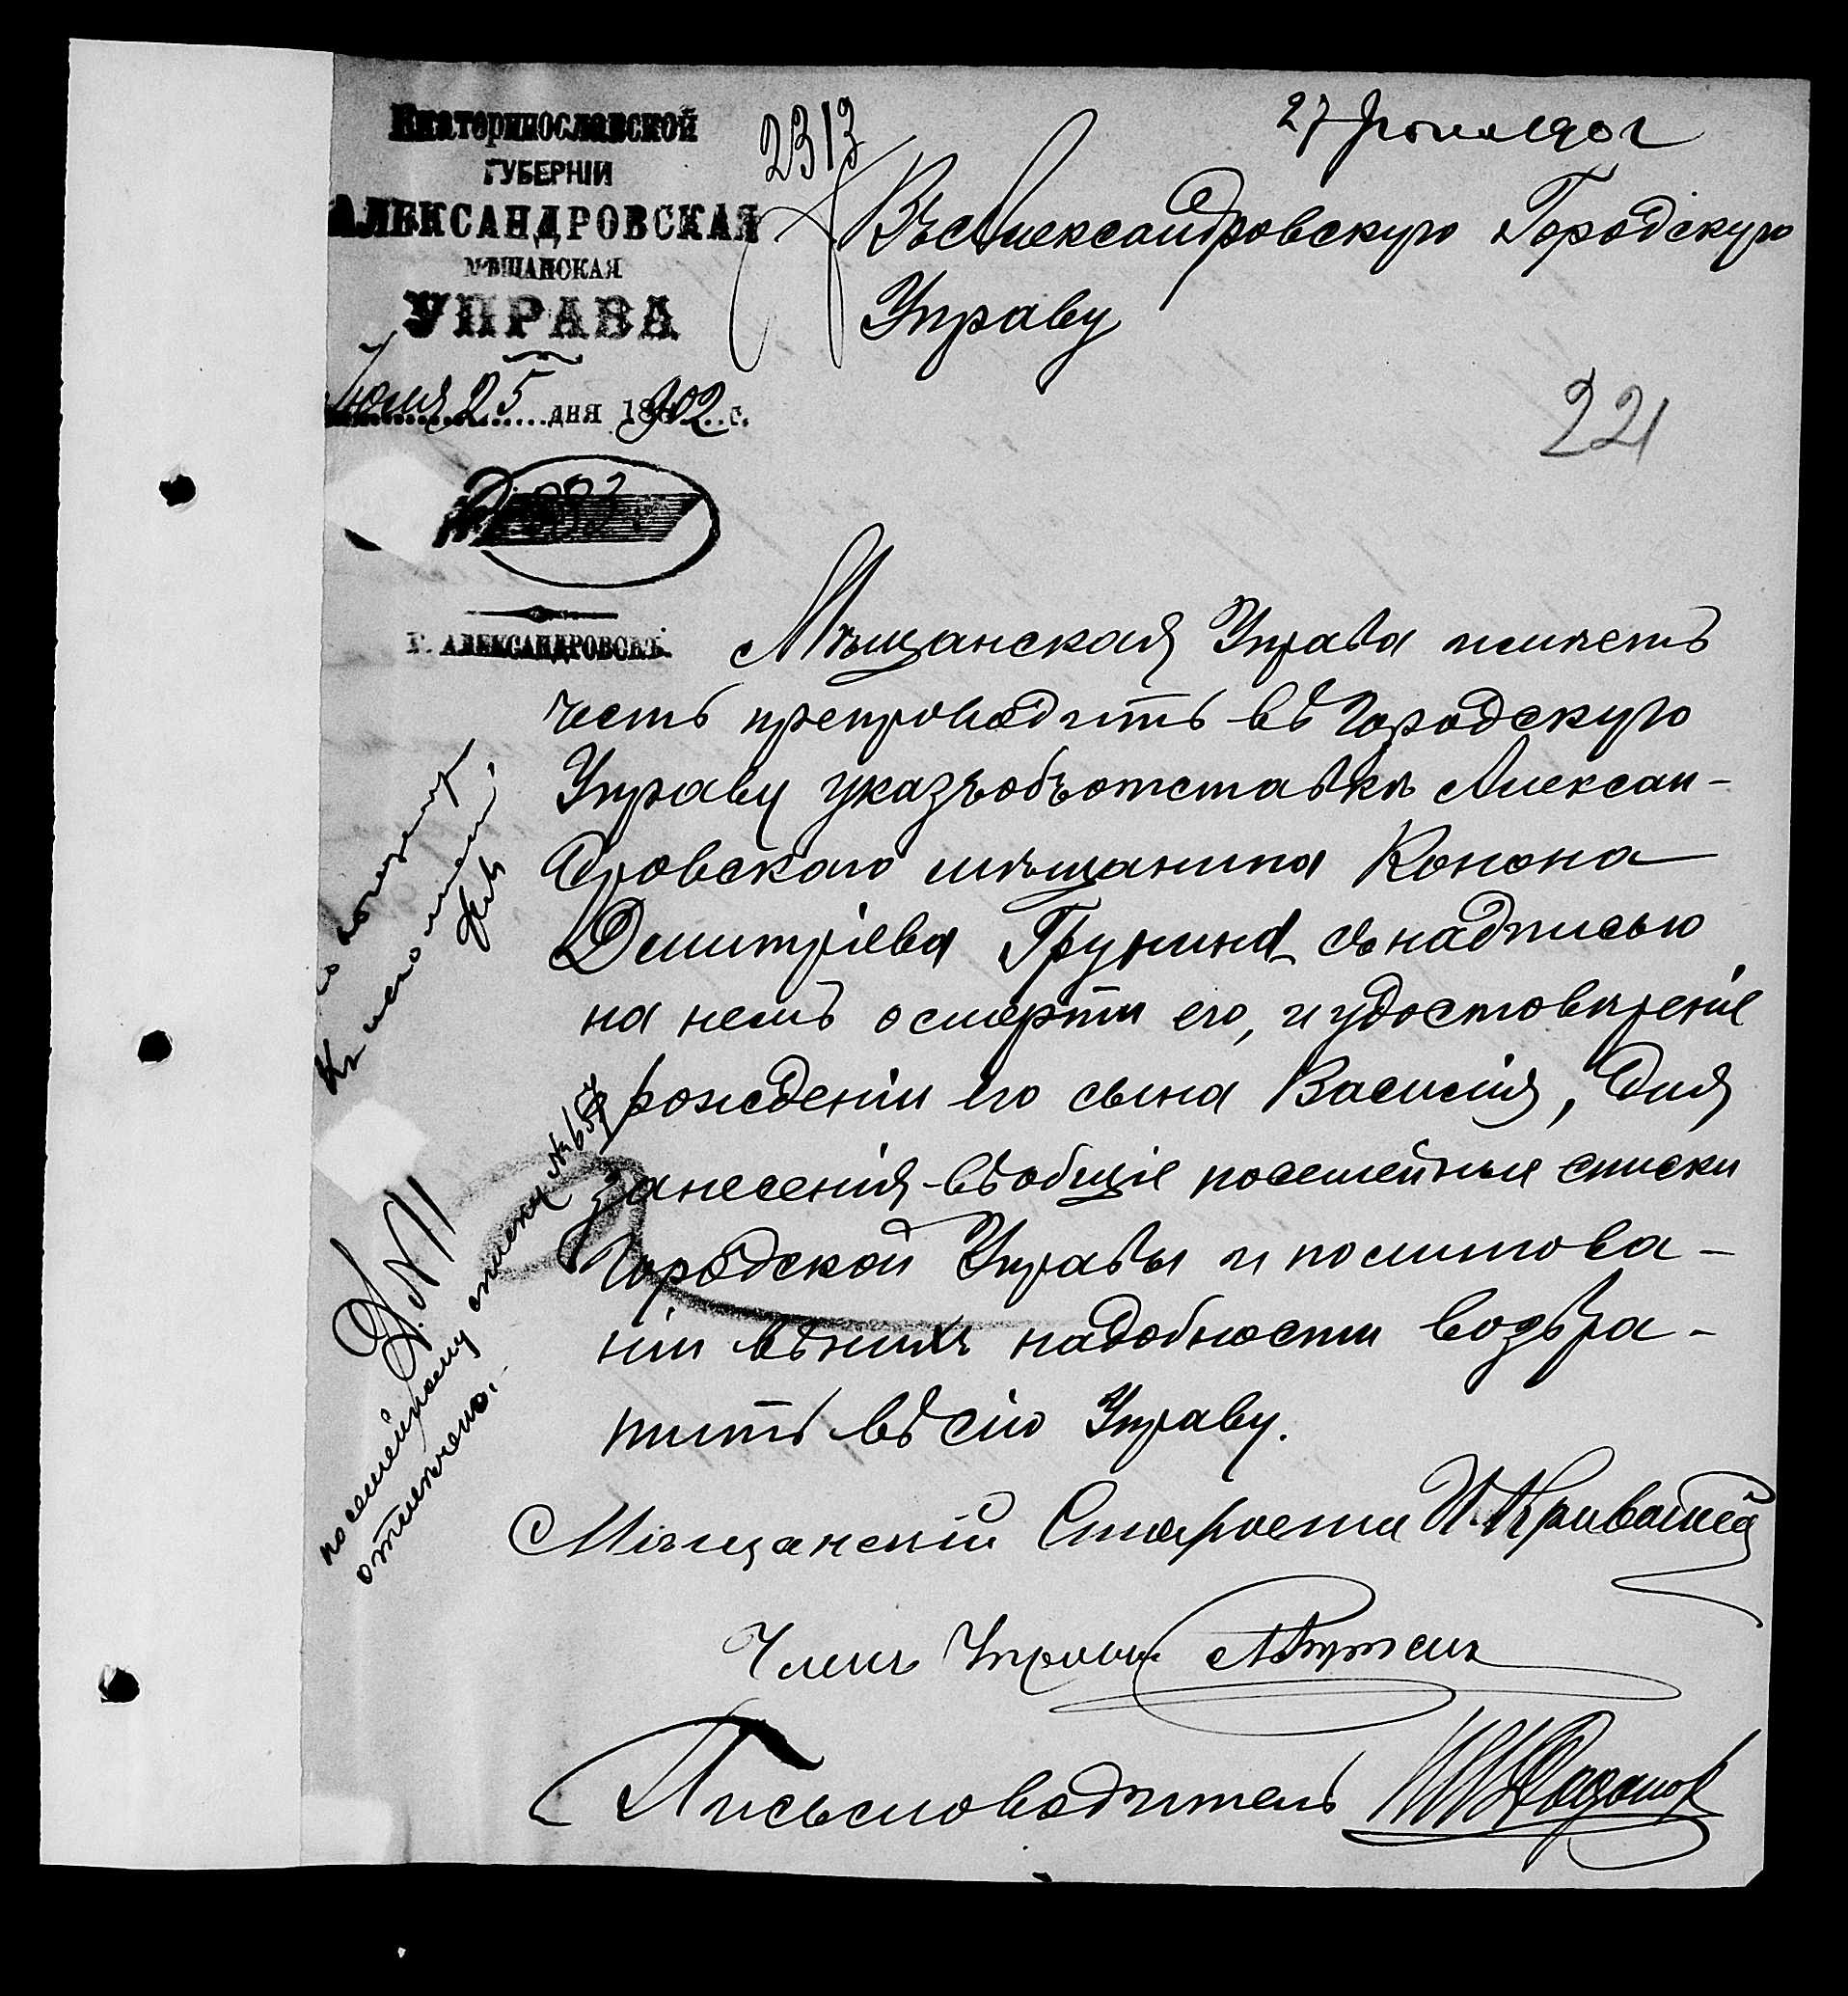 Екатеринославской
ГУБЕРНІИ
АЛЕКСАНДРОВСКАЯ
МѢЩАНСКАЯ
УПРАВА
Іюля 25 дня 1902 г.
Г. АЛЕКСАНДРОВСКЪ.
2313
27 1902
Въ Александровскую Городскую
Управу
221
Мѣщанская Управа имѣетъ
честь препроводить въ Городскую
Управу указъ объ отставкѣ Алексан-
дровскаго мѣщанина Конона
Димитріева Грунина съ надписью
на немъ о смерти его, и удостовѣреніе
рожденіи его сына Василія, для
занесенія въ общіе посемейные списки
Городской Управы и по минова-
ніи въ нихъ надобности возвра-
тить въ сію Управу.
Мѣщанскій Староста
Членъ Управы
Письмоводитель
Къ
по семейному списку № 659
отмѣчено.